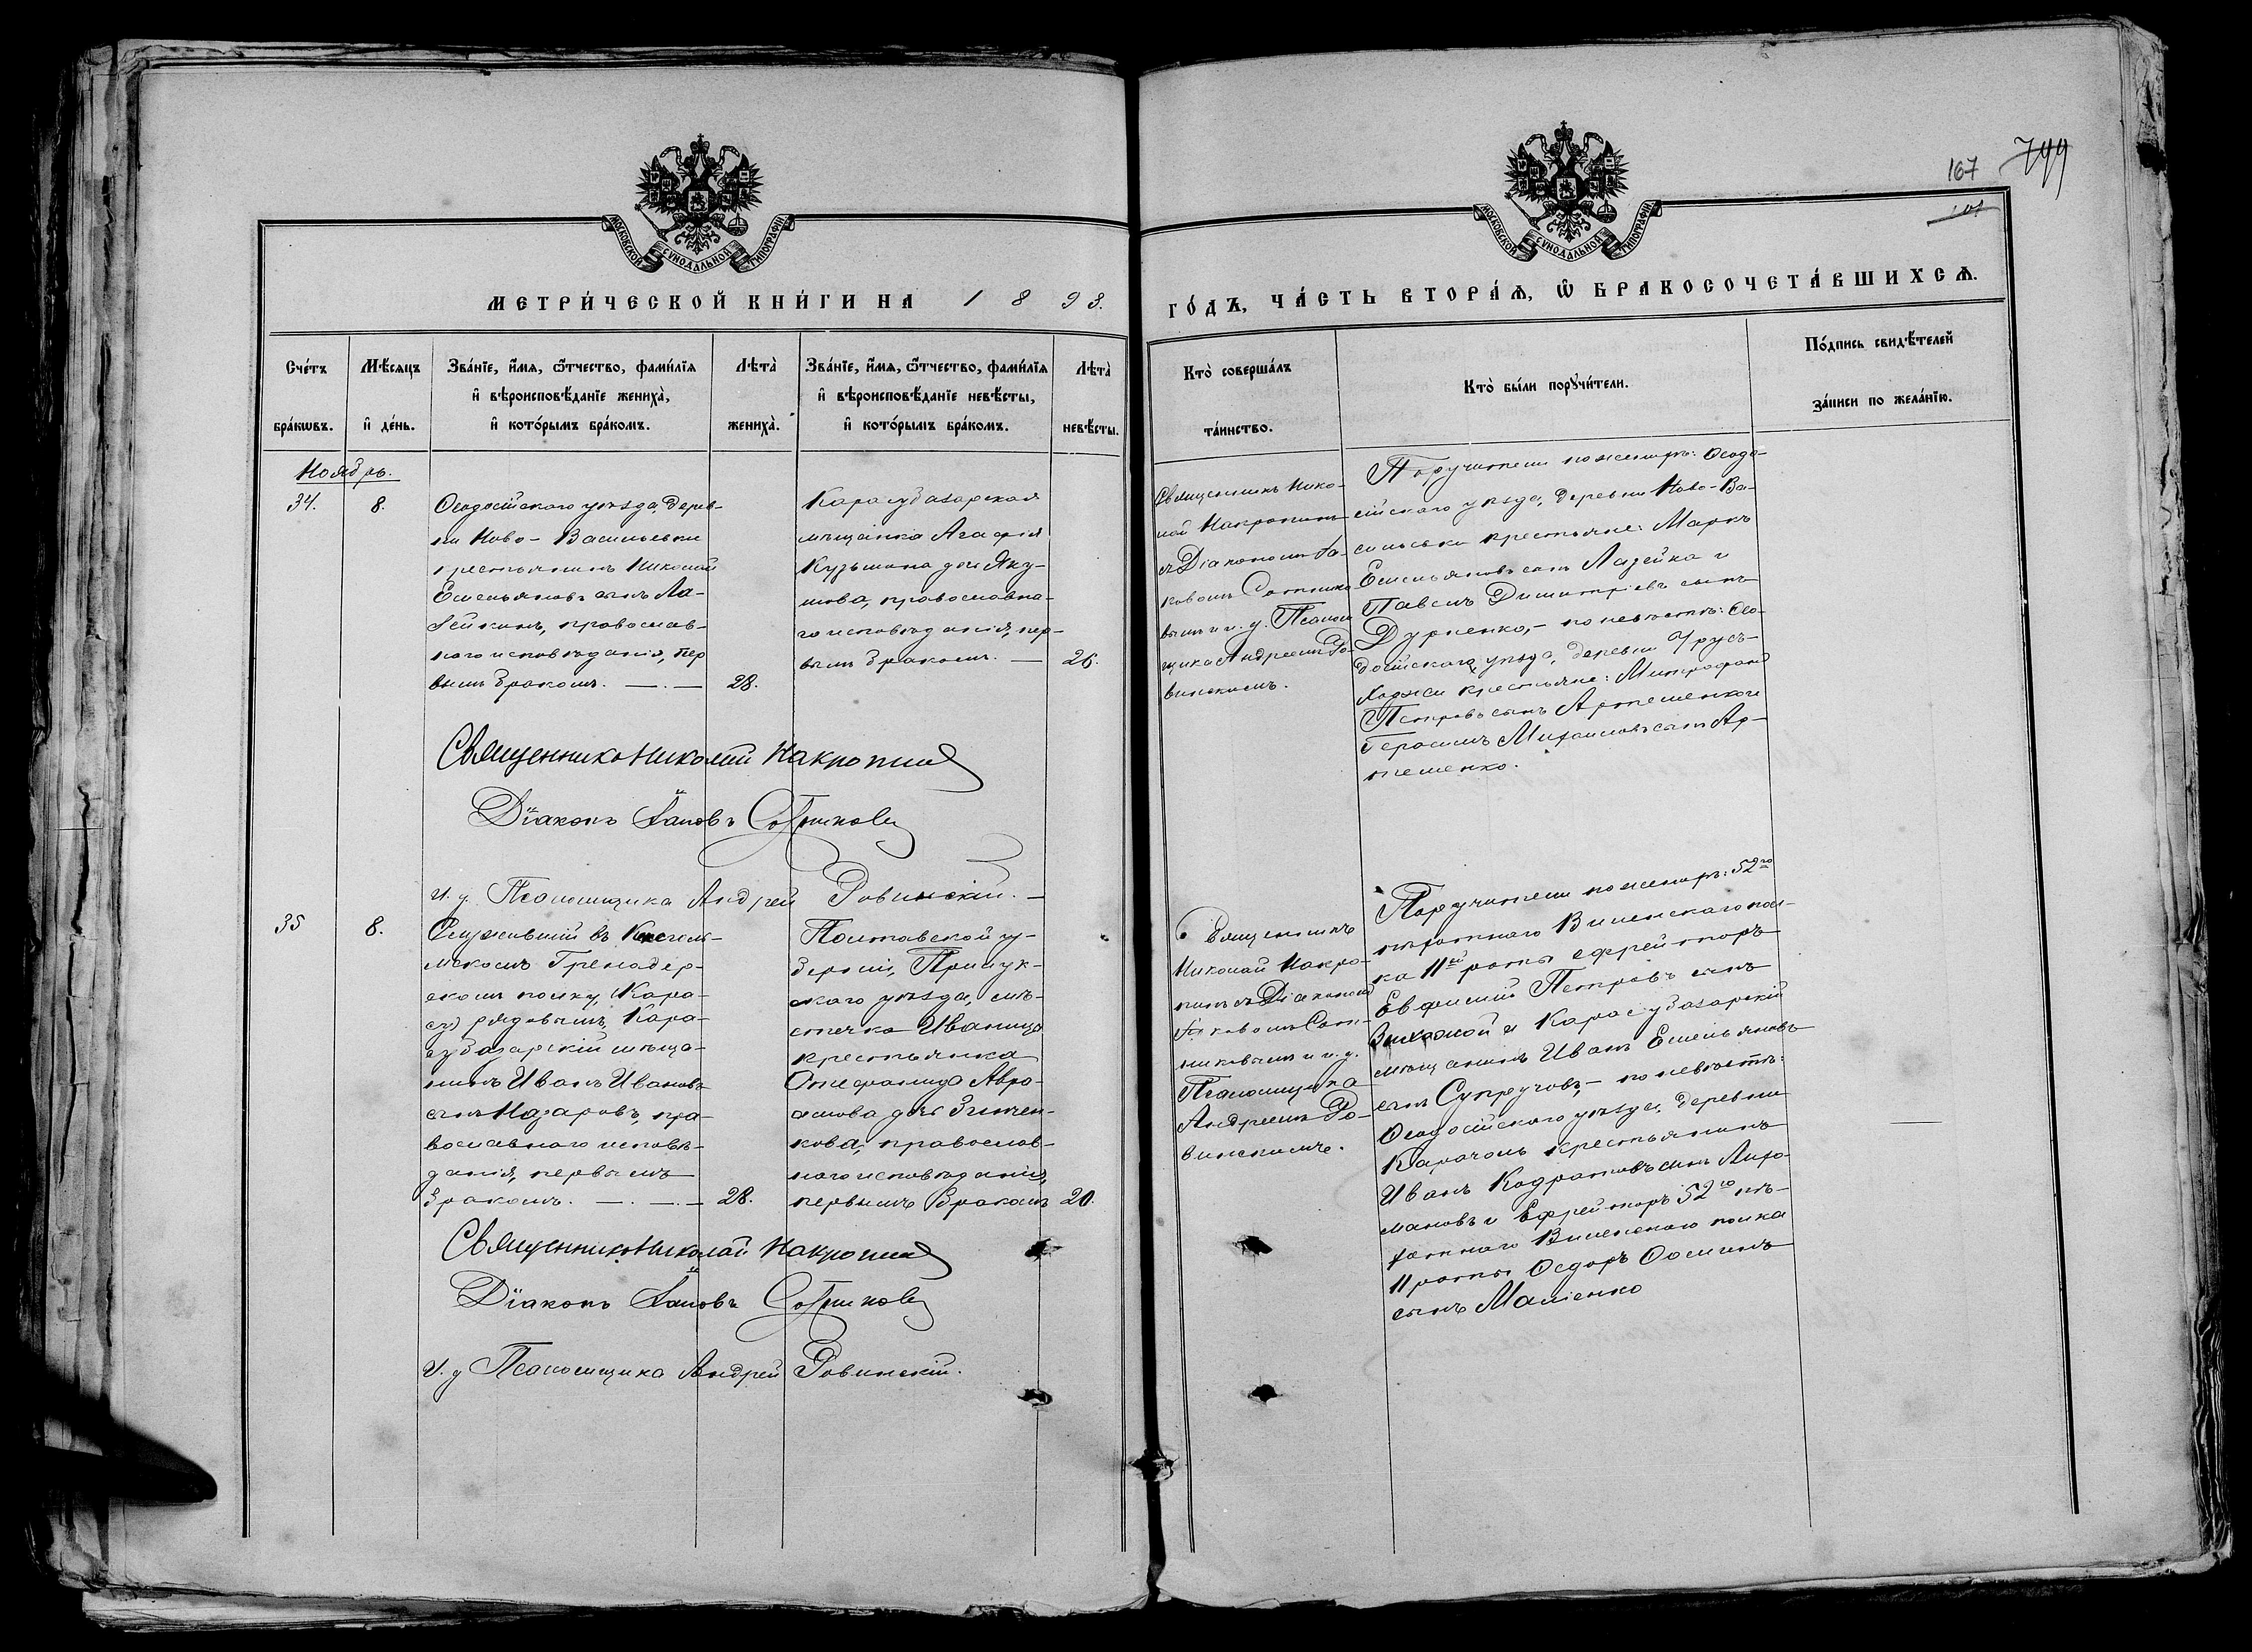 167 799
101
МОСКОВСКОЙ СѴНОДАЛЬНОЙ ТИПОГРАФІИ
МОСКОВСКОЙ СѴНОДАЛЬНОЙ ТИПОГРАФІИ
МЕТРИ́ЧЕСКОЙ КНИ́ГИ НА 1893.
ГО́ДЪ, ЧА́СТЬ ВТОРА́Ѧ, Ѡ҆ БРАКОСОЧЕТА́ВШИХСѦ.
Сче́тъ бра́кѡвъ.
Мѣ́сѧцъ и҆ де́нь.
Зва́нїе, и҆́мѧ, ѻ҆́тчество, фами́лїѧ
и҆ вѣроисповѣ́данїе жениха̀,
и҆ кото́рымъ бра́комъ.
Лѣта̀ жениха̀.
Зва́нїе, и҆́мѧ, ѻ҆́тчество, фами́лїѧ
и҆ вѣроисповѣ́данїе невѣ́сты,
и҆ кото́рымъ бра́комъ.
Лѣта̀ невѣ́сты.
Кто̀ соверша́лъ та́инство.
Кто̀ бы́ли порꙋчи́тели.
По́дпись свидѣ́телей
за́писи по жела́нїю.
Ноябрь.
34.
8.
Ѳеодосійскаго уѣзда, дерев-
ни Ново-Васильевки
крестьянинъ Николай
Емельяновъ сынъ Ла-
зейкинъ, православ-
наго исповѣданія, пер
вымъ бракомъ. — . —
28.
Карасубазарская
мѣщанка Агафія
Кузьмина дочь Яку-
шова, православна-
го исповѣданія, пер-
вымъ бракомъ. —
26.
Священникъ Нико-
лай Макропинъ
съ Діакономъ Іа-
ковомъ Сотнико
вымъ и и. д. Псалом
щика Андреемъ Ро-
винскимъ.
Поручители по женихѣ: Ѳеодо-
сійскаго уѣзда, деревни Ново-Ва-
сильевки крестьяне: Маркъ
Емельяновъ сынъ Лазейка и
Павелъ Димитріевъ сынъ
Дурненко, — по невѣстѣ: Ѳео-
досійскаго уѣзда, деревни Урусъ-
Ходжи крестьяне: Митрофанъ
Петровъ сынъ Артеменко и
Герасимъ Михаиловъ сынъ Ар-
теменко.
Священникъ Николай Макропинъ
Діаконъ Іаковъ Сотниковъ
И. д. Псаломщика Андрей Ровинскій. —
35
8.
Служившій въ
Гренадер-
скомъ полку,
рядовымъ, Кара-
субазарскій мѣща-
нинъ Иванъ Ивановъ
сынъ Назаровъ, пра-
вославнаго исповѣ-
данія, первымъ
бракомъ. — . — . —
28.
Полтавской гу-
берніи, Прилук-
скаго уѣзда, мѣ-
стечка Иваница
крестьянка
Стефанида Авра-
амова дочь Зинчен-
кова, православ-
наго исповѣданія,
первымъ бракомъ
20.
Священникъ
Николай Макро-
пинъ съ Діакономъ
Іаковомъ Сот-
никовымъ и и. д.
Псаломщика
Андреемъ Ро-
винскимъ.
Поручители по женихѣ: 52го
пѣхотнаго Виленскаго пол-
ка 11ой роты ефрейторъ
Евфимій Петровъ сынъ
и Карасубазарскій
мѣщанинъ Иванъ Емельяновъ
сынъ Супруновъ, — по невѣстѣ:
Ѳеодосійскаго уѣзда, деревни
Карачоль крестьянинъ
Иванъ Кодратовъ сынъ Лиро-
мановъ и Ефрейторъ 52го пѣ-
хотнаго Виленскаго полка
11 роты Ѳедоръ Ѳоминъ
сынъ Маліенко
Священникъ Николай Макропинъ
Діаконъ Іаковъ Сотниковъ
И. д Псаломщика Андрей Ровинскій.